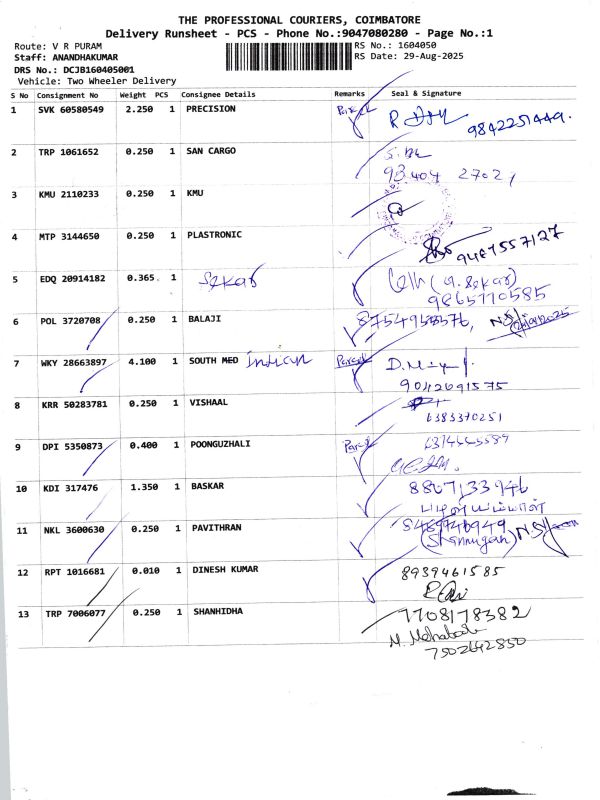 THE PROFESSIONAL COURIERS, COIMBATORE
Delivery Runsheet - PCS - Phone No.:9047080280 - Page No.:1
Route: V R PURAM RS No.: 1604050
Staff: ANANDHAKUMAR RS Date: 29-Aug-2025
DRS No.: DCJB160405001
Vehicle: Two Wheeler Delivery
S No Consignment No Weight PCS Consignee Details Remarks Seal & Signature
1 SVK 60580549 2.250 1 PRECISION
9842251449.
2 TRP 1061652 0.250 1 SAN CARGO
93404 27021
3 KMU 2110233 0.250 1 KMU
4 MTP 3144650 0.250 1 PLASTRONIC
9487557127
5 EDQ 20914182 0.365. 1 Sekar (G. Sekar)
9865770585
6 POL 3720708 0.250 1 BALAJI
7 WKY 28663897 4.100 1 SOUTH MED Indian Parcel
9042691575
8 KRR 50283781 0.250 1 VISHAAL
6383370251
9 DPI 5350873 0.400 1 POONGUZHALI
10 KDI 317476 1.350 1 BASKAR 8867133946
11 NKL 3600630 0.250 1 PAVITHRAN
(Shanmugan)
12 RPT 1016681 0.010 1 DINESH KUMAR 8939461585
13 TRP 7006077 0.250 1 SHANHIDHA 7708178382
7502642850